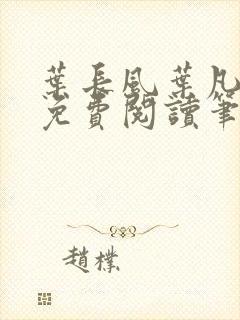 葉長風葉凡
免費閱讀筆
趙樸